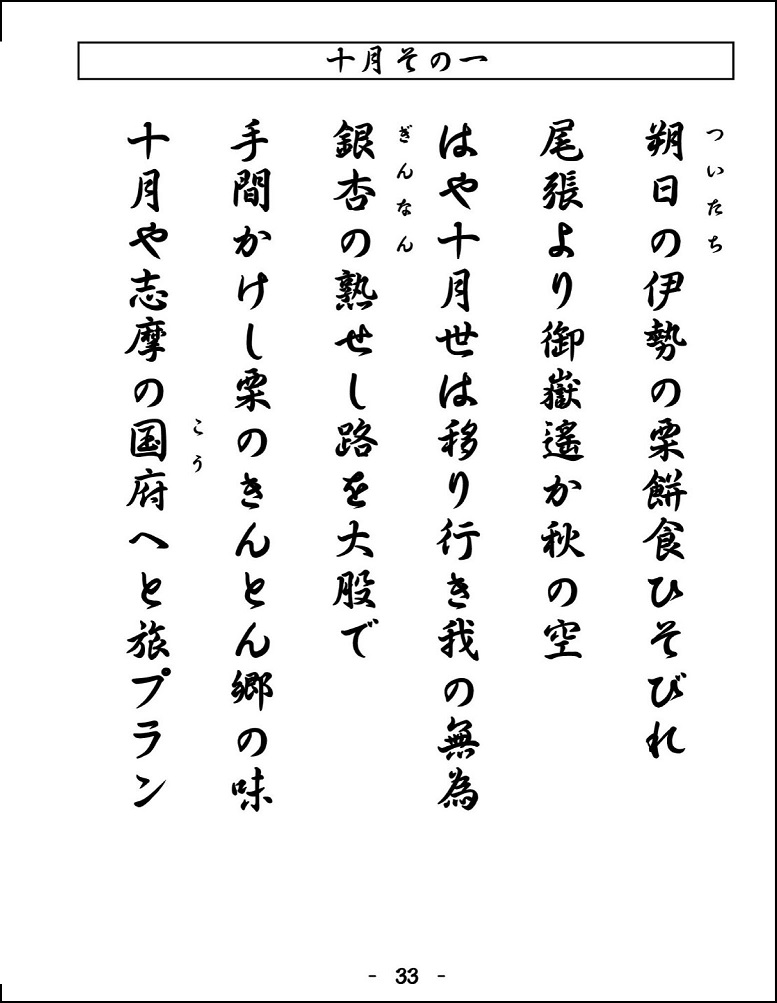 十月その一
朔日の伊勢の栗餅食ひそびれ
ついたち
尾張より御嶽遙か秋の空
はや十月世は移り行き我の無為
銀杏の熟せし路を大股で
ぎんなん
手間かけし栗のきんとん郷の味
十月や志摩の国府へと旅プラン
こう
- 33 -